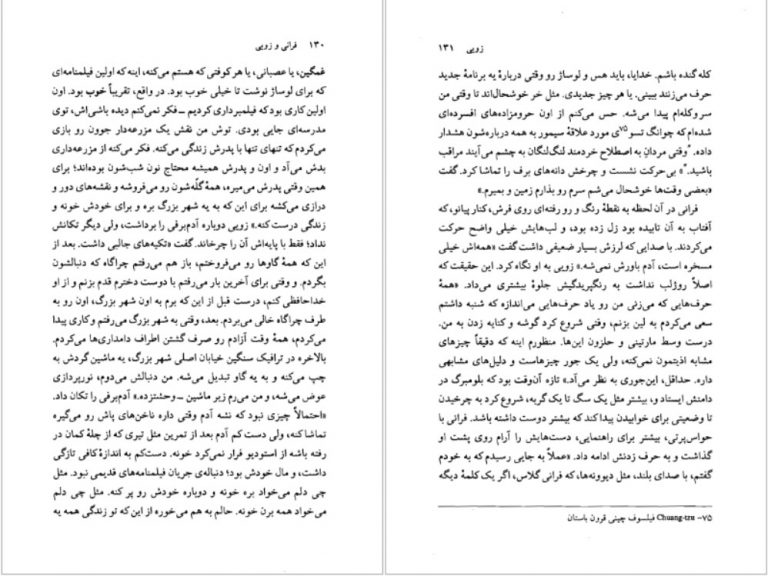 ۱۳۰ فرانی و زویی
غمگین، یا عصبانی، یا هر کوفتی که هستم می‌کنه، اینه که اولین فیلمنامه‌ای
که برای لوساژ نوشت تا خیلی خوب بود. در واقع، تقریباً خوب بود. اون
اولین کاری بود که فیلمبرداری کردیم ــ فکر نمی‌کنم دیده باشی‌اش، توی
مدرسه‌ای جایی بودی. توش من نقش یک مزرعه‌دار جوون رو بازی
می‌کردم که تنهای تنها با پدرش زندگی می‌کنه. فکر می‌کنه از مزرعه‌داری
بدش می‌آد و اون و پدرش همیشه محتاج نون شب‌شون بوده‌اند؛ برای
همین وقتی پدرش می‌میره، همهٔ گلّه‌شون رو می‌فروشه و نقشه‌های دور و
درازی می‌کشه برای این که به یه شهر بزرگ بره و برای خودش خونه و
زندگی درست کنه.» زویی دوباره آدم‌برفی را برداشت، ولی دیگر تکانش
نداد؛ فقط با پایه‌اش آن را چرخاند. گفت «تکیه‌های جالبی داشت. بعد از
این که همهٔ گاوها رو می‌فروختم، باز هم می‌رفتم چراگاه که دنبالشون
بگردم. و وقتی برای آخرین بار می‌رفتم با دوست دخترم قدم بزنم و از او
خداحافظی کنم، درست قبل از این که برم به اون شهر بزرگ، اون رو به
طرف چراگاه خالی می‌بردم. بعد، وقتی به شهر بزرگ می‌رفتم و کاری پیدا
می‌کردم، همهٔ وقت آزادم رو صرف گشتن اطراف دامداری‌ها می‌کردم.
بالاخره در ترافیک سنگین خیابان اصلی شهر بزرگ، یه ماشین گردش به
چپ می‌کنه و به یه گاو تبدیل می‌شه. من دنبالش می‌دوم، نورپردازی
عوض می‌شه، و من می‌رم زیر ماشین ــ وحشتزده.» آدم‌برفی را تکان داد.
«احتمالاً چیزی نبود که نشه آدم وقتی داره ناخن‌های پاش رو می‌گیره
تماشا کنه، ولی دست کم آدم بعد از تمرین مثل تیری که از چلهٔ کمان در
رفته باشه از استودیو فرار نمی‌کرد خونه. دست‌کم به اندازهٔ کافی تازگی
داشت، و مال خودش بود؛ دنباله‌ی جریان فیلمنامه‌های قدیمی نبود. مثل
چی دلم می‌خواد بره خونه و دوباره خودش رو پر کنه. مثل چی دلم
می‌خواد همه برن خونه. حالم به هم می‌خوره از این که تو زندگی همه یه
زویی ۱۳۱
کله‌گنده باشم. خدایا، باید هس و لوساژ رو وقتی دربارهٔ یه برنامهٔ جدید
حرف می‌زنند ببینی. یا هر چیز جدیدی. مثل خر خوشحال‌اند تا وقتی من
سر و کله‌ام پیدا می‌شه. حس می‌کنم از اون حرومزاده‌های افسرده‌ای
شده‌ام که چوانگ تسو۷۵ی مورد علاقهٔ سیمور به همه درباره‌شون هشدار
داده. "وقتی مردانِ به اصطلاح خردمند لنگ‌لنگان به چشم می‌آیند مراقب
باشید."» بی‌حرکت نشست و چرخش دانه‌های برف را تماشا کرد. گفت
«بعضی وقت‌ها خوشحال می‌شم سرم رو بذارم زمین و بمیرم.»
فرانی در آن لحظه به نقطهٔ رنگ و رو رفته‌ای روی فرش، کنار پیانو، که
آفتاب به آن تابیده بود زل زده بود، و لب‌هایش خیلی واضح حرکت
می‌کردند. با صدایی که لرزش بسیار ضعیفی داشت گفت «همه‌اش خیلی
مسخره است، آدم باورش نمی‌شه.» زویی به او نگاه کرد. این حقیقت که
اصلاً روژلب نداشت به رنگپریدگیش جلوهٔ بیشتری می‌داد. «همهٔ
حرف‌هایی که می‌زنی من رو یاد حرف‌هایی می‌اندازه که شنبه داشتم
سعی می‌کردم به لین بزنم، وقتی شروع کرد گوشه و کنایه زدن به من.
درست وسط مارتینی و حلزون این‌ها. منظورم اینه که دقیقاً چیزهای
مشابه اذیتمون نمی‌کنه، ولی یک جور چیزهاست و دلیل‌های مشابهی
داره. حداقل، این‌جوری به نظر می‌آد.» تازه آن‌وقت بود که بلومبرگ در
دامنش ایستاد و، بیشتر مثل یک سگ تا یک گربه، شروع کرد به چرخیدن
تا وضعیتی برای خوابیدن پیدا کند که بیشتر دوست داشته باشد. فرانی با
حواس‌پرتی، بیشتر برای راهنمایی، دست‌هایش را آرام روی پشت او
گذاشت و به حرف زدنش ادامه داد. «عملاً به جایی رسیدم که به خودم
گفتم، با صدای بلند، مثل دیوونه‌ها، که فرانی گلاس، اگر یک کلمهٔ دیگه
۷۵– Chuang-tzu فیلسوف چینی قرون باستان